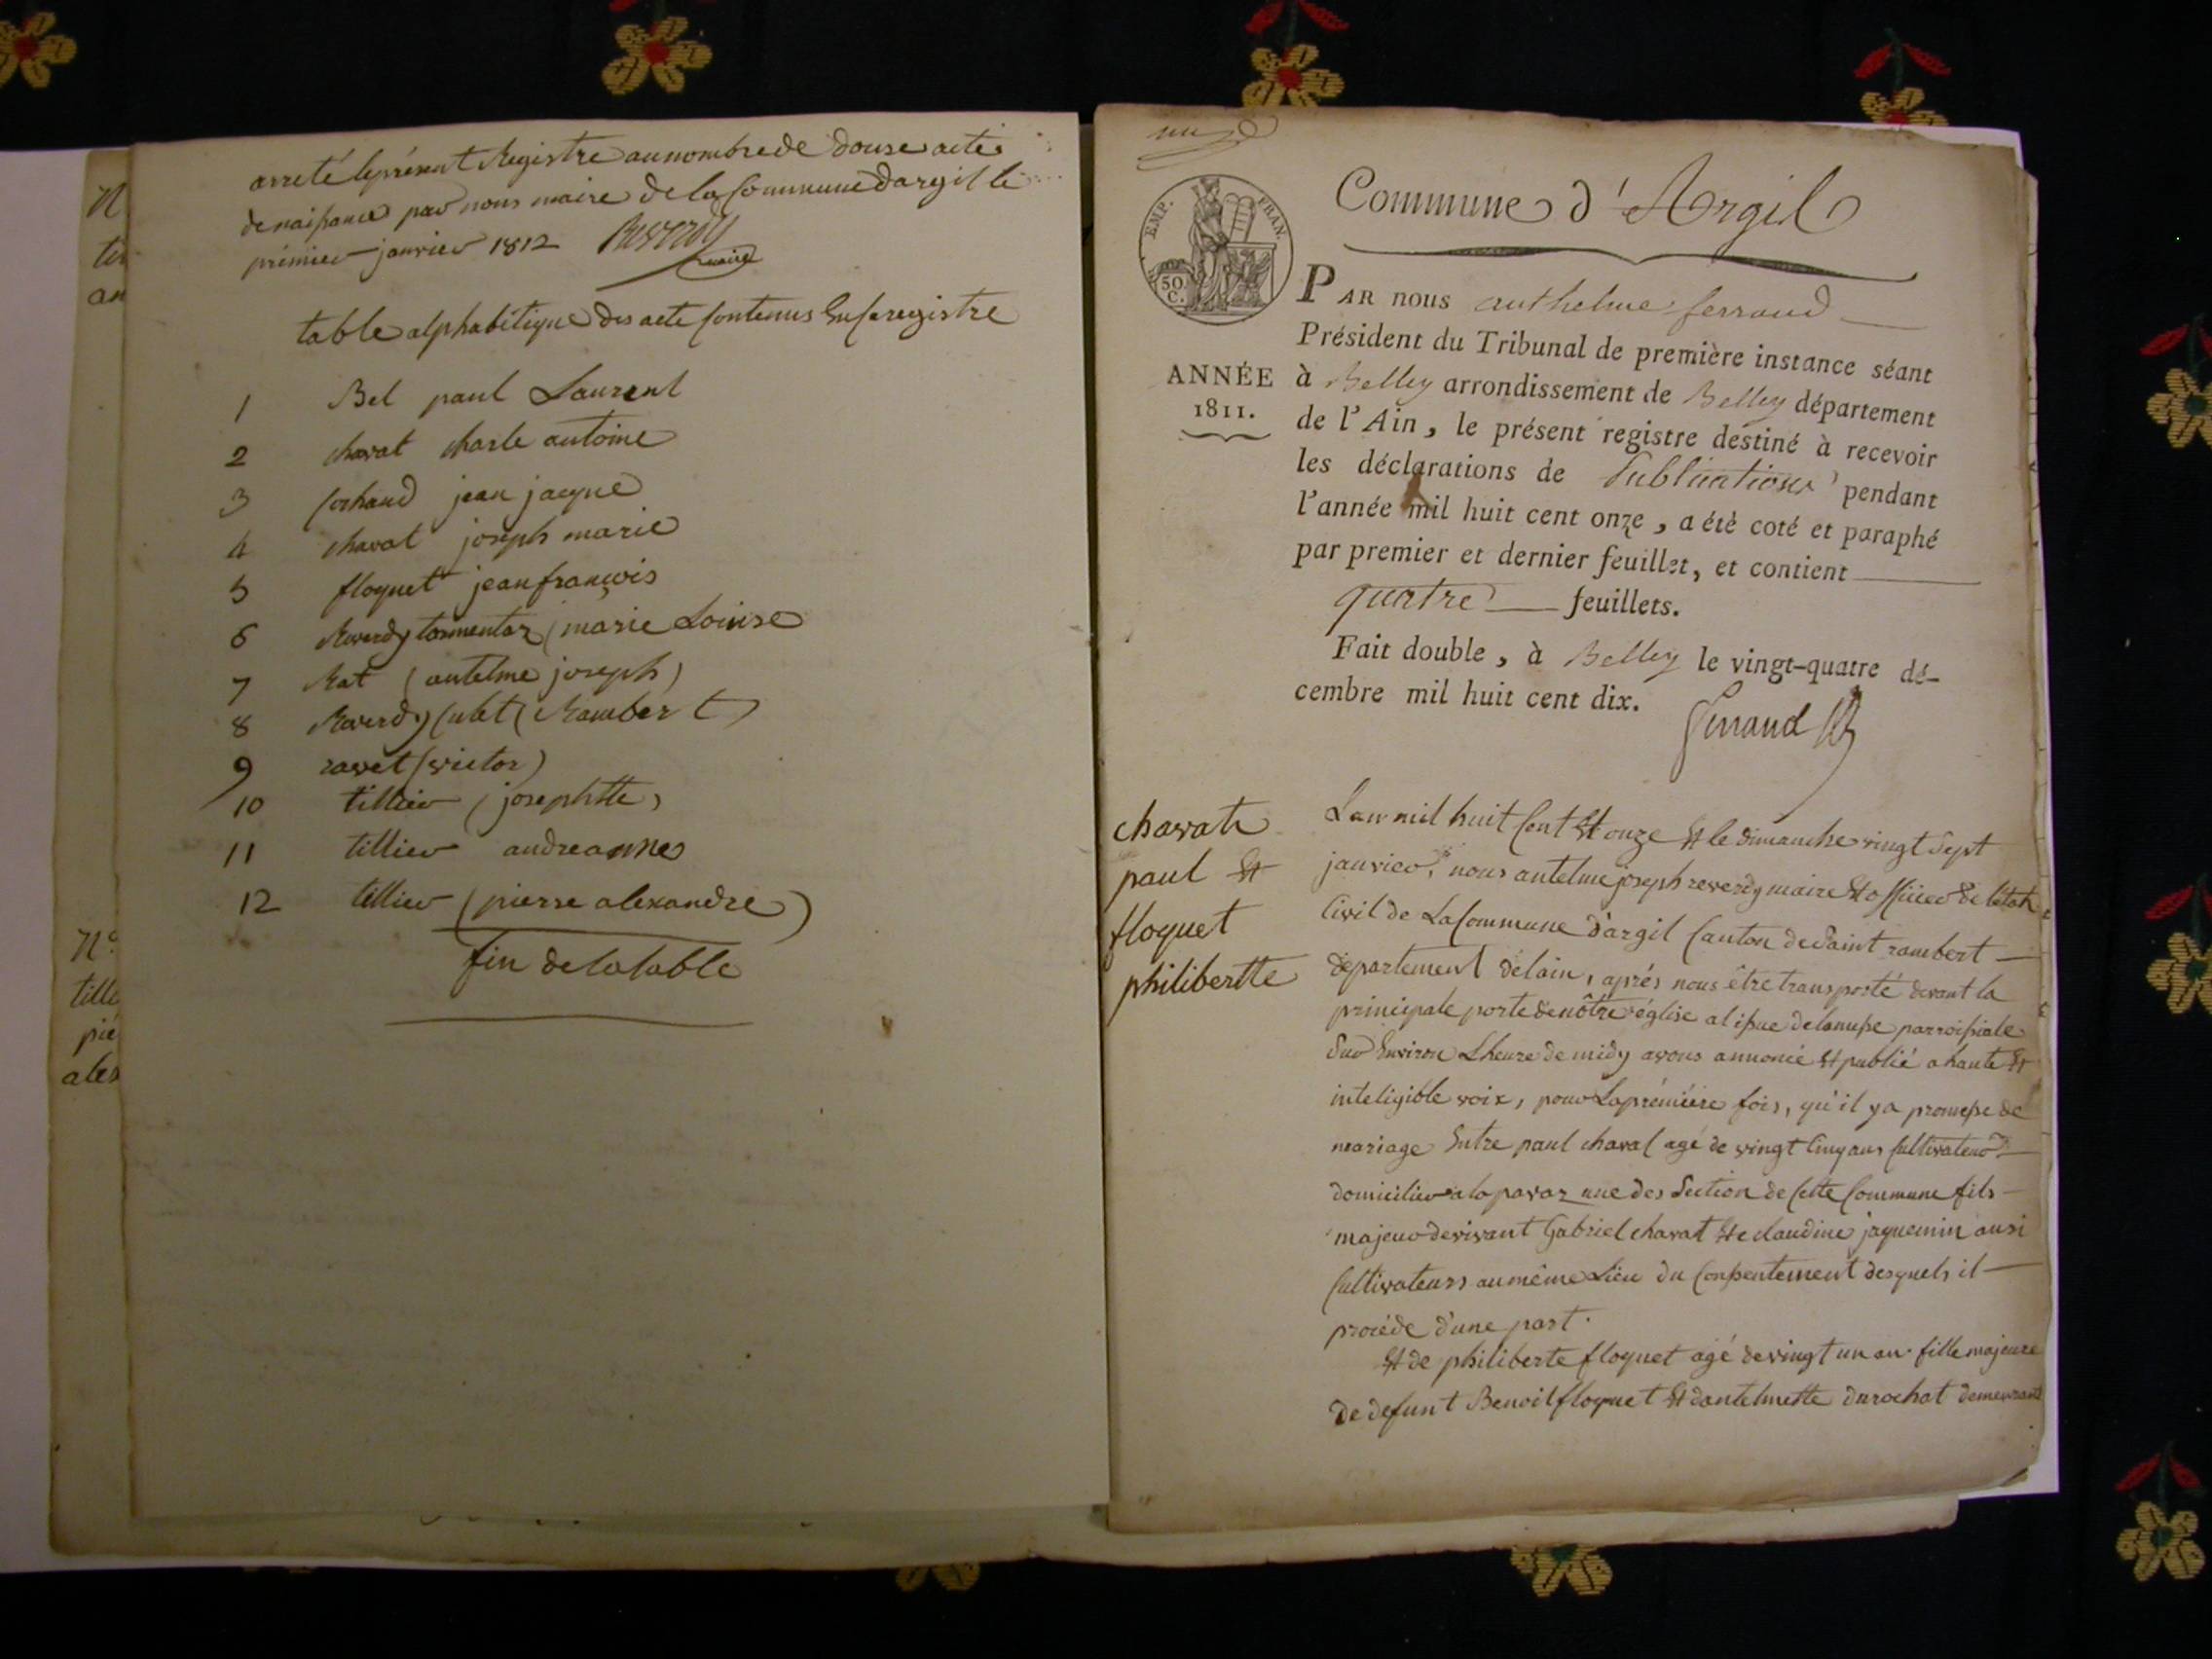 arreté leprésent Registre aunombrede douse actes
denaissance par nous maire de la Commune dargil le
prémier janvier 1812 Reverdy
maire
table alphabétique des acte Contenus En Ce registre
1 Bel paul Laurent
2 chavat charle antoine
3 Cochaud jean jacque
4 chavat joseph marie
5 floquet jean françois
6 Reverdy tormentaz (marie Louise
7 Rat (antelme joseph)
8 Reverdy Culet (Rambert)
9 ravet (victor)
10 tillier (josephtte)
11 tillier andreanne
12 tillier (pierre alexandre)
fin de la table
N
an
N.º
tille
pié
alex
un
Commune d'Argil
EMP. FRAN.
50 C.
ANNÉE
1811.
PAR nous anthelme ferraud
Président du Tribunal de première instance séant
à Belley arrondissement de Belley département
de l'Ain, le présent registre destiné à recevoir
les déclarations de Publications pendant
l'année mil huit cent onze, a été coté et paraphé
par premier et dernier feuillet, et contient
quatre feuillets.
Fait double, à Belley le vingt-quatre dé-
cembre mil huit cent dix.
Ferraud
chavat
paul Et
floquet
philibertte
Lan mil huit Cent Et onze Et le dimanche vingt Sept
janvier, nous antelme joseph reverdy maire Et officier de l'état
Civil de La Commune d'argil Canton de Saint rambert
département delain, aprés nous être transporté devant la
principale porte de nôtre église a l issue de la messe parroissiale
Sur Environ L heure de midy avons annoncé Et publié a haute Et
inteligible voix, pour La prémiére fois, qu'il y a promesse de
mariage Entre paul chavat agé de vingt Cinq ans Cultivateur
domicilier a la pavaz une des Section de Cette Commune fils
majeur de vivant Gabriel chavat Et claudine jaquemin aussi
Cultivateurs au même Lieu du Consentement desquels il
procéde d'une part.
Et de philiberte floquet agé de vingt un an fille majeure
de defunt Benoit floquet Et dantelmette durochat demeurant